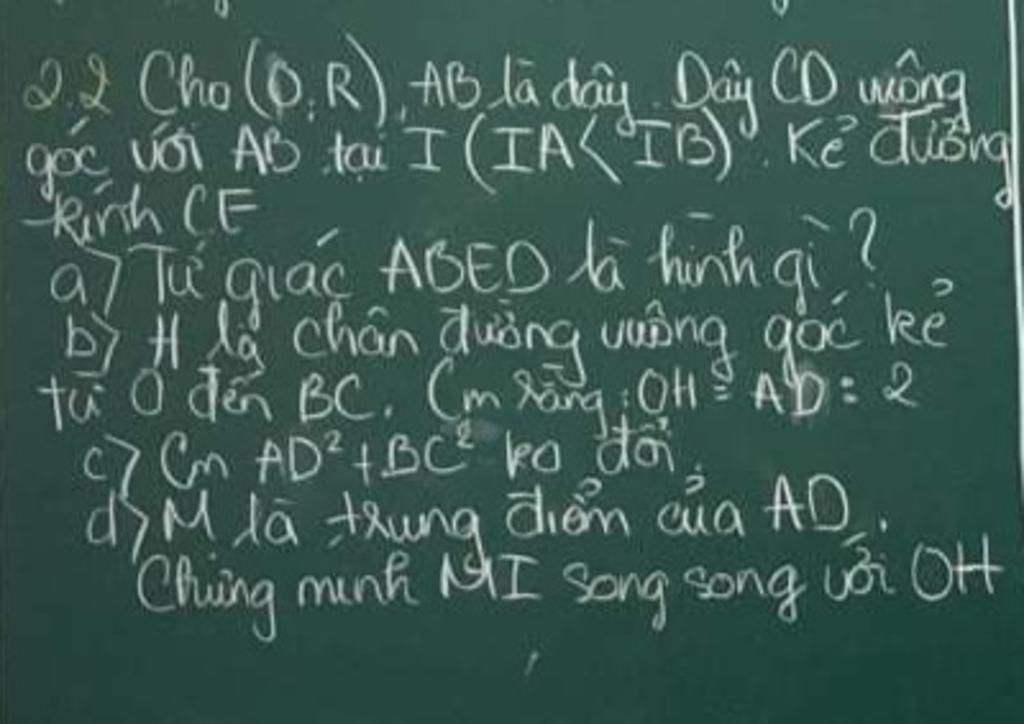 2.2 Cho (O;R), AB là dây. Dây CD vuông
góc với AB tại I (IA < IB). Kẻ đường
kính CE
a) Tứ giác ABED là hình gì?
b) H là chân đường vuông góc kẻ
từ O đến BC. Cm rằng: OH = AD : 2
c) Cm AD² + BC² ko đổi.
d) M là trung điểm của AD.
Chứng minh MI song song với OH